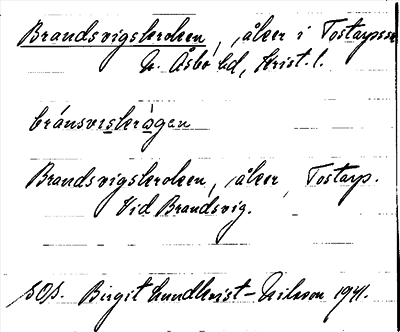 Brandsvigskroken, åker i Tostarps sn
N. Åsbo hd, Krist. l.
bránsveskrågen
Brandsvigskroken, åker, Tostarp.
Vid Brandsvig.
SOS. Birgit Lundkvist-Nilsson 1941.